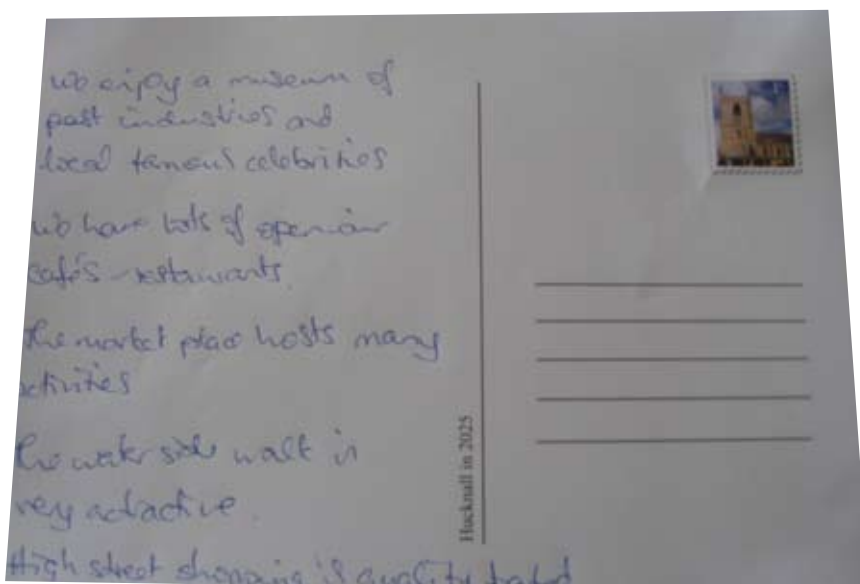 we enjoy a museum of
past industries and
local famous celebrities
we have lots of open air
cafés - restaurants.
The market place hosts many
activities
The water side walk is
very attractive.
High street shopping is quality based
Hucknall in 2025